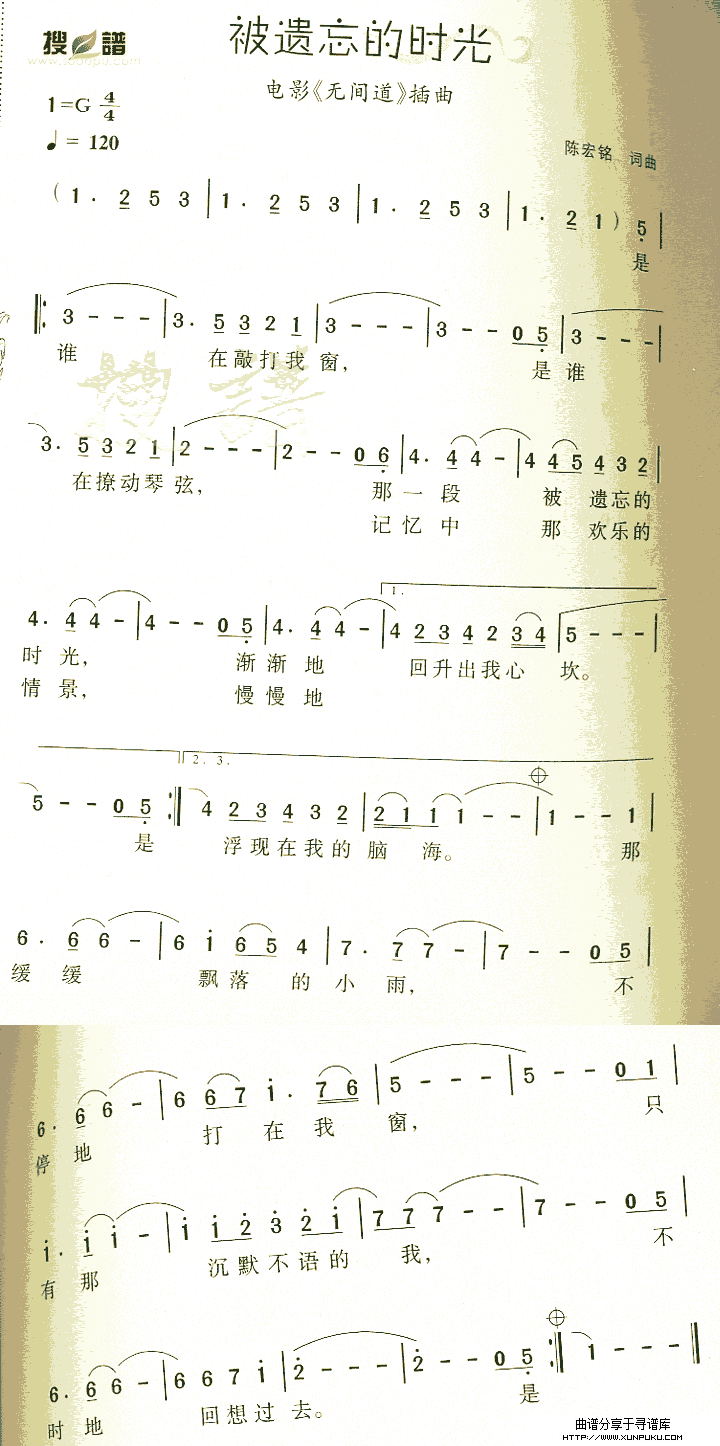 搜谱
www.sooopu.com
被遗忘的时光
电影《无间道》插曲
1=G 4/4
♩= 120
陈宏铭 词曲
( 1 . 2 5 3 | 1 . 2 5 3 | 1 . 2 5 3 | 1 . 2 1 ) 5 |
是
‖: 3 - - - | 3 . 5 3 2 1 | 3 - - - | 3 - - 0 5 | 3 - - - |
谁 在敲打我窗， 是谁
3 . 5 3 2 1 | 2 - - - | 2 - - 0 6 | 4 . 4 4 - | 4 4 5 4 3 2 |
在撩动琴弦， 那一段 被遗忘的
记忆中 那欢乐的
1.
4 . 4 4 - | 4 - - 0 5 | 4 . 4 4 - | 4 2 3 4 2 3 4 | 5 - - - |
时光， 渐渐地 回升出我心坎。
情景， 慢慢地
2. 3.
5 - - 0 5 :‖ 4 2 3 4 3 2 | 2 1 1 1 - - | 1 - - 1 |
是 浮现在我的脑海。 那
6 . 6 6 - | 6 1 6 5 4 | 7 . 7 7 - | 7 - - 0 5 |
缓缓 飘落的小雨， 不
6 . 6 6 - | 6 6 7 1 . 7 6 | 5 - - - | 5 - - 0 1 |
停地 打在我窗， 只
1 . 1 1 - | 1 1 2 3 2 1 | 7 7 7 - - | 7 - - 0 5 |
有那 沉默不语的我， 不
6 . 6 6 - | 6 6 7 1 | 2 - - - | 2 - - 0 5 :‖ 1 - - - ‖
时地 回想过去。 是
曲谱分享于寻谱库
HTTP://WWW.XUNPUKU.COM